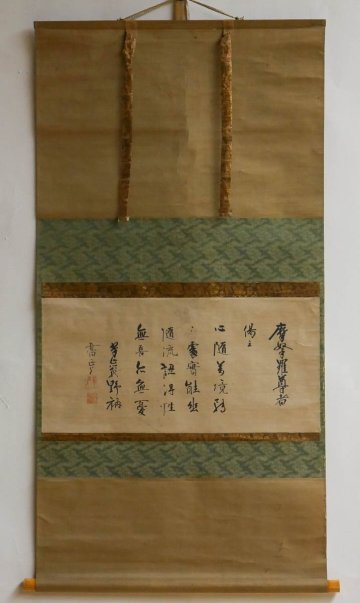 摩拏羅尊者
偈云
心隨萬境轉
轉處實能幽
隨流認得性
無喜亦無憂
野衲